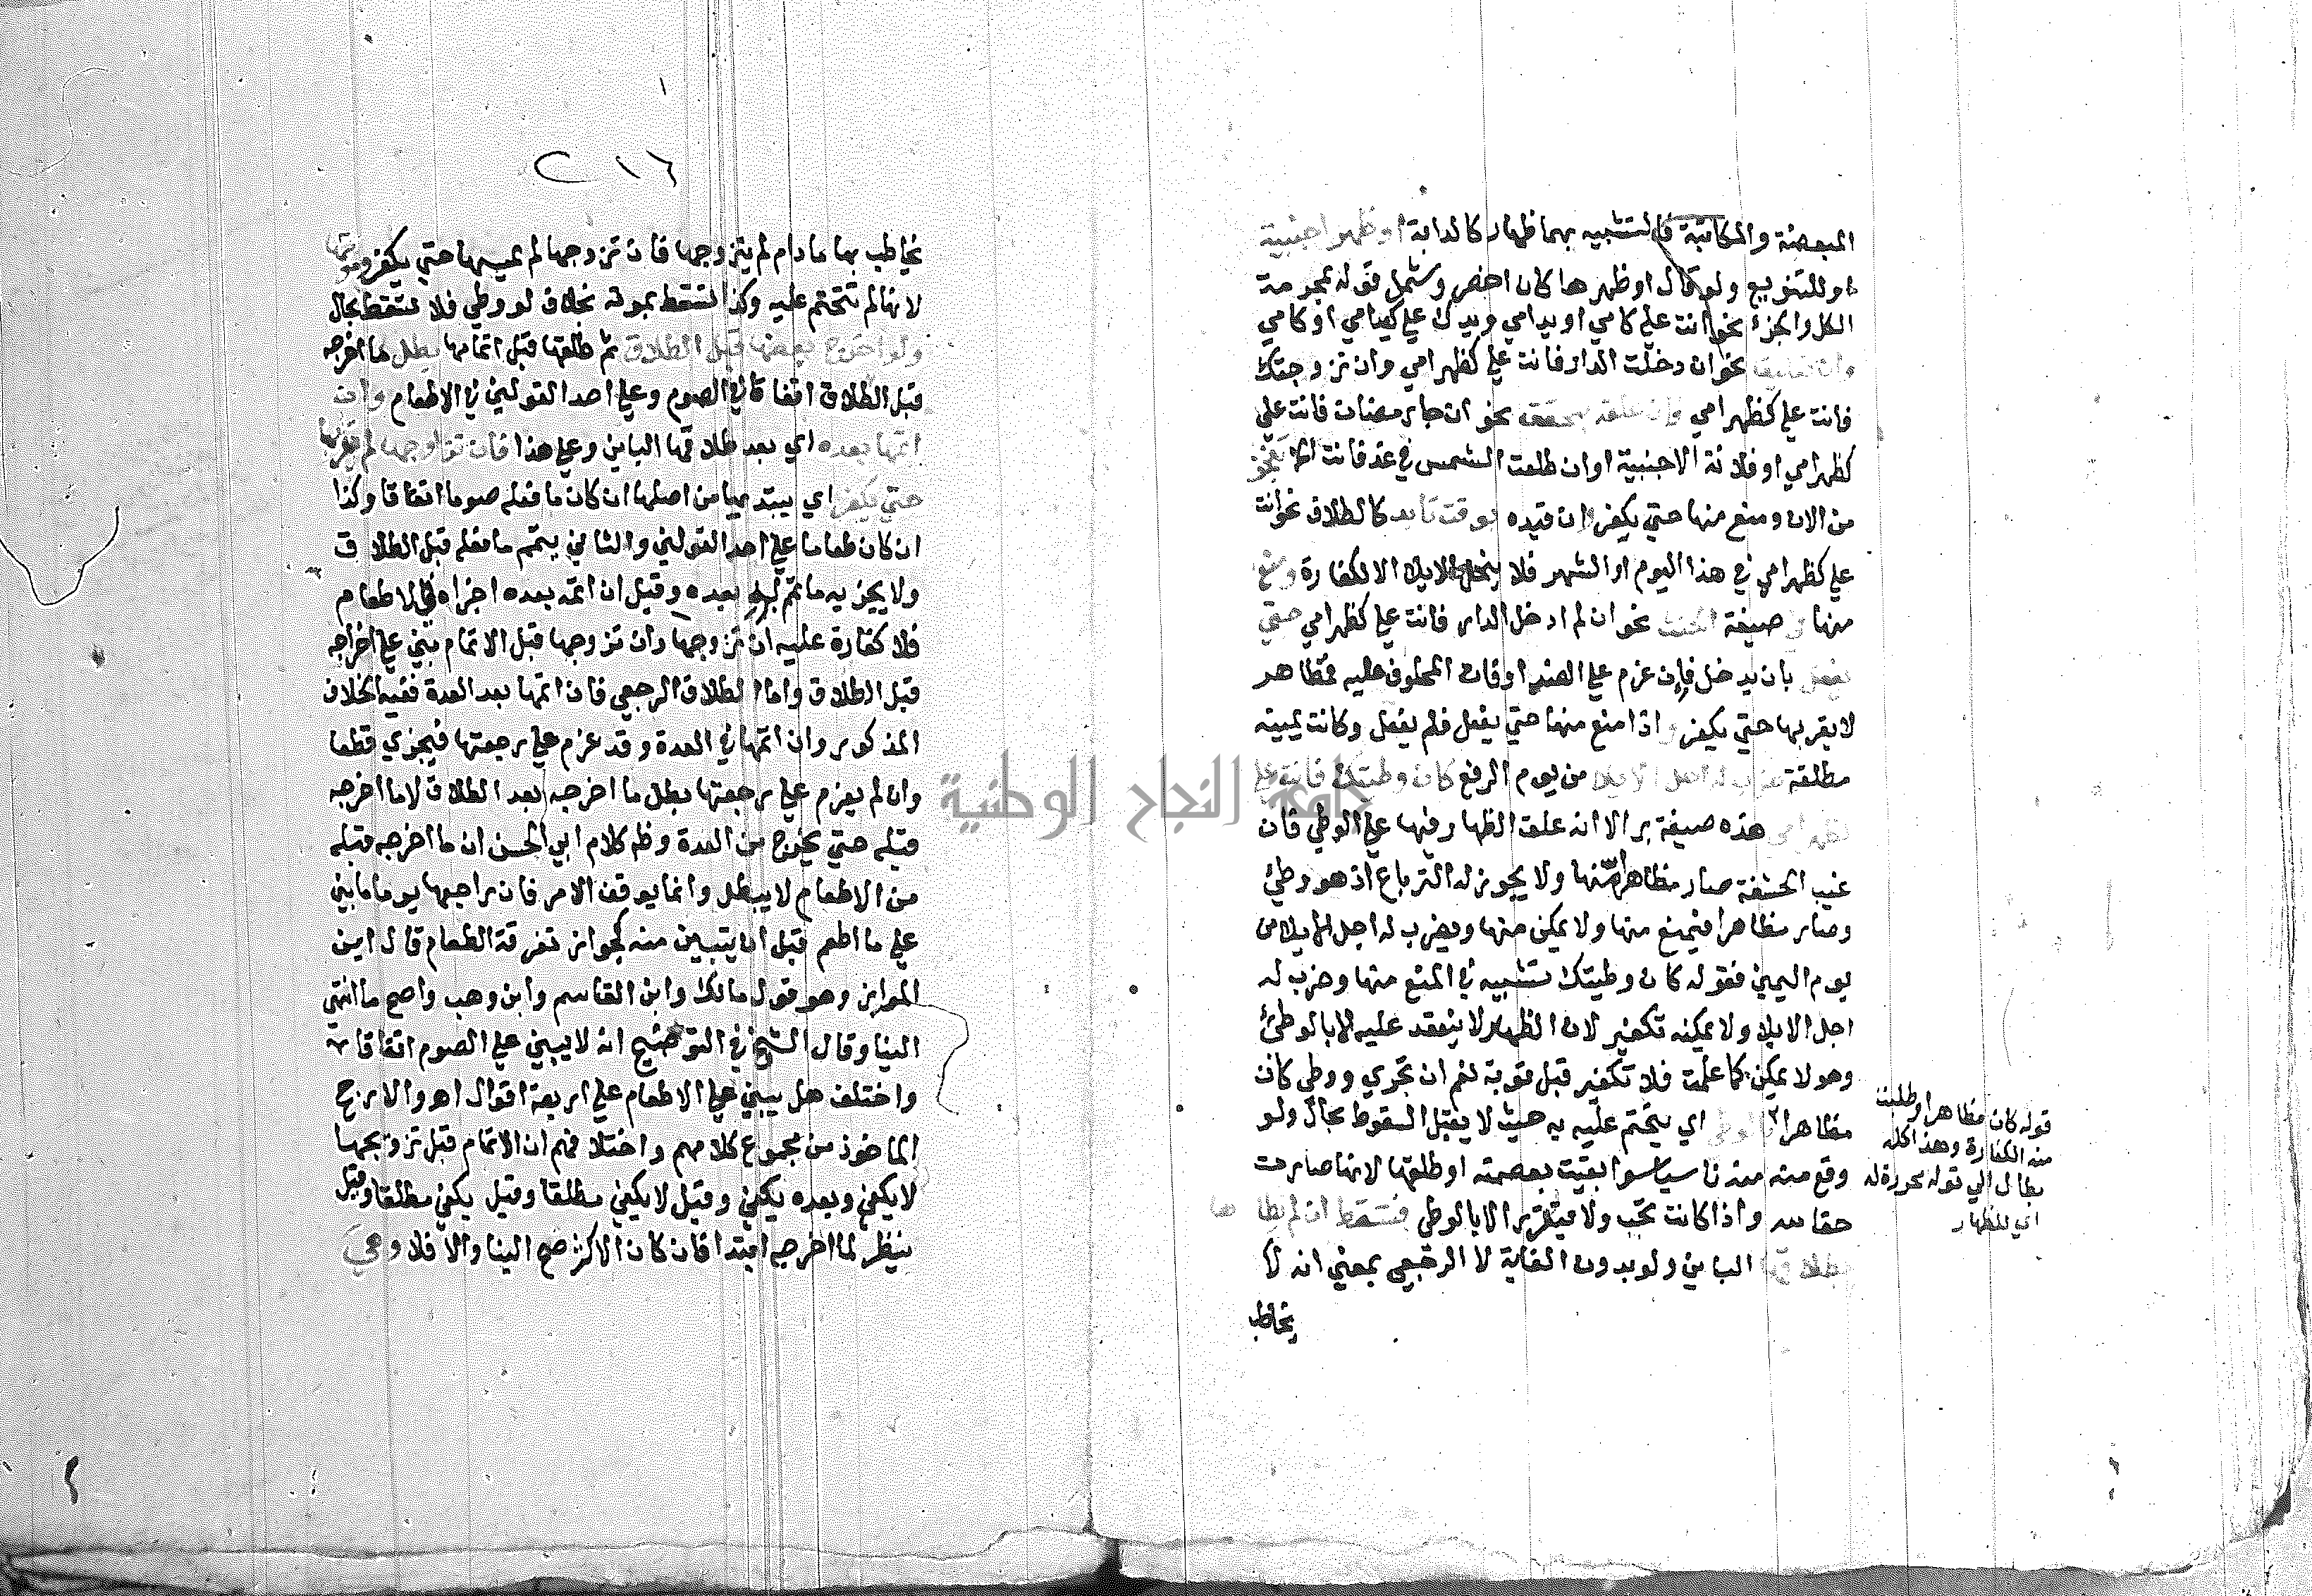 المبعضة والمكاتبة فالتشبيه بهما ظهار كالدابة او ظهر اجنبية
او للتنويع ولو قال او ظهرها كان اخصر وشمل قوله بمحرمة
الكل والجزء نحو انت علي كامي او يد امي ويدك علي كيد امي او كامي
وان تعليقا نحو ان دخلت الدار فانت علي كظهر امي وان تزوجتك
فانت علي كظهر امي وان علقه بمحقق نحو ان جا رمضان فانت علي
كظهر امي او فلانة الاجنبية او ان طلعت الشمس في غد فانت
من الان ومنع منها حتي يكفر وان قيده بوقت تابد كالطلاق نحو انت
علي كظهر امي في هذا اليوم او الشهر فلا ينحل الا بالكفارة ومنع
منها في صيغة الحنث نحو ان لم ادخل الدار فانت علي كظهر امي حتي
يفعل بان يدخل فان عزم علي الضد او فات المحلوف عليه فمظاهر
لا يقربها حتي يكفر واذا منع منها حتي يفعل فلم يفعل وكانت يمينه
مطلقة ضرب له اجل الايلا من يوم الرفع كان وطيتك فانت علي
كظهر امي هذه صيغة بر الا انه علق الظهار فيها علي الوطي فان
غيب الحشفة صار مظاهرا منها ولا يجوز له النزع اذ هو وطئ
وصار مظاهرا فيمنع منها ولا يمكن منها ويضرب له اجل الايلا من
يوم اليمين فقوله كان وطيتك تشبيه في المنع منها وضرب له
اجل الايلا ولا يمكنه تكفير لان الظهار لا ينعقد عليه الا بالوطئ
وهو لا يمكن كما علمت فلا تكفير قبل ثوبة نعم ان تجري ووطي كان
مظاهرا بالوطي اي يتحتم عليه به حيث لا يقبل السقوط بحال ولو
وقع منه منه ناسيا سوا بقيت بعصمته او طلقها لانها صارت
حقا لله واذا كانت تجب ولا تتقرر الا بالوطي فتسقط ان لم يطاها
بطلاقها الباين ولو بدون الغاية لا الرجعي بمعني انه لا
يخاطب
قوله كان مظاهرا وطلبت
منه الكفارة وهذا كله
يقال الي قوله بحررة له
اي للظهار
٢١٦
يخاطب بها ما دام لم يتزوجها فان تزوجها لم يمسها حتي يكفر وبموتها
لانها لم تتحتم عليه وكذا تسقط بموته بخلاف لو وطي فلا تسقط بحال
ولو اخرج بعضها قبل الطلاق ثم طلقها قبل اتمامها بطل ما اخرجه
قبل الطلاق اتفاقا في الصوم وعلي احد القولين في الاطعام وان
اتمها بعده اي بعد طلاقها الباين وعلي هذا فان تزوجها لم يقربها
حتي يكفر اي يبتديها من اصلها ان كان ما فعله صوما اتفاقا وكذا
ان كان طعاما علي احد القولين والثاني يتمم ما فعله قبل الطلاق
ولا يجزيه ما تممه بعده وقيل ان اتمه بعده اجزاه في الاطعام
فلا كفارة عليه ان تزوجها وان تزوجها قبل الاتمام بني علي اخراجه
قبل الطلاق واما الطلاق الرجعي فان اتمها بعد العدة ففيه الخلاف
المذكور وان اتمها في العدة وقد عزم علي رجعتها فيجزي قطعا
وان لم يعزم علي رجعتها بطل ما اخرجه بعد الطلاق لا ما اخرجه
قبله حتي يخرج من العدة وظم كلام ابي الحسن ان ما اخرجه قبله
من الاطعام لا يبطل وانما يوقف الامر فان راجعها يوما ما بني
علي ما اطعم قبل ان يتبين منه لجواز تفرقة الطعام قال ابن
المواز وهو قول مالك وابن القاسم وابن وهب واصح ما انتهي
الينا وقال الشيخ في التوضيح انه لا يبني علي الصوم اتفاقا
واختلف هل يبني علي الاطعام علي اربعة اقوال اهـ والارجح
الماخوذ من مجموع كلامهم واختلافهم ان الاتمام قبل تزوجها
لا يكفي وبعده يكفي وقيل لا يكفي مطلقا وقيل يكفي مطلقا وقيل
ينظر لما اخرجه ابتدا فان كان الاكثر صح البنا والا فلا وهي
جامعة النجاح الوطنية